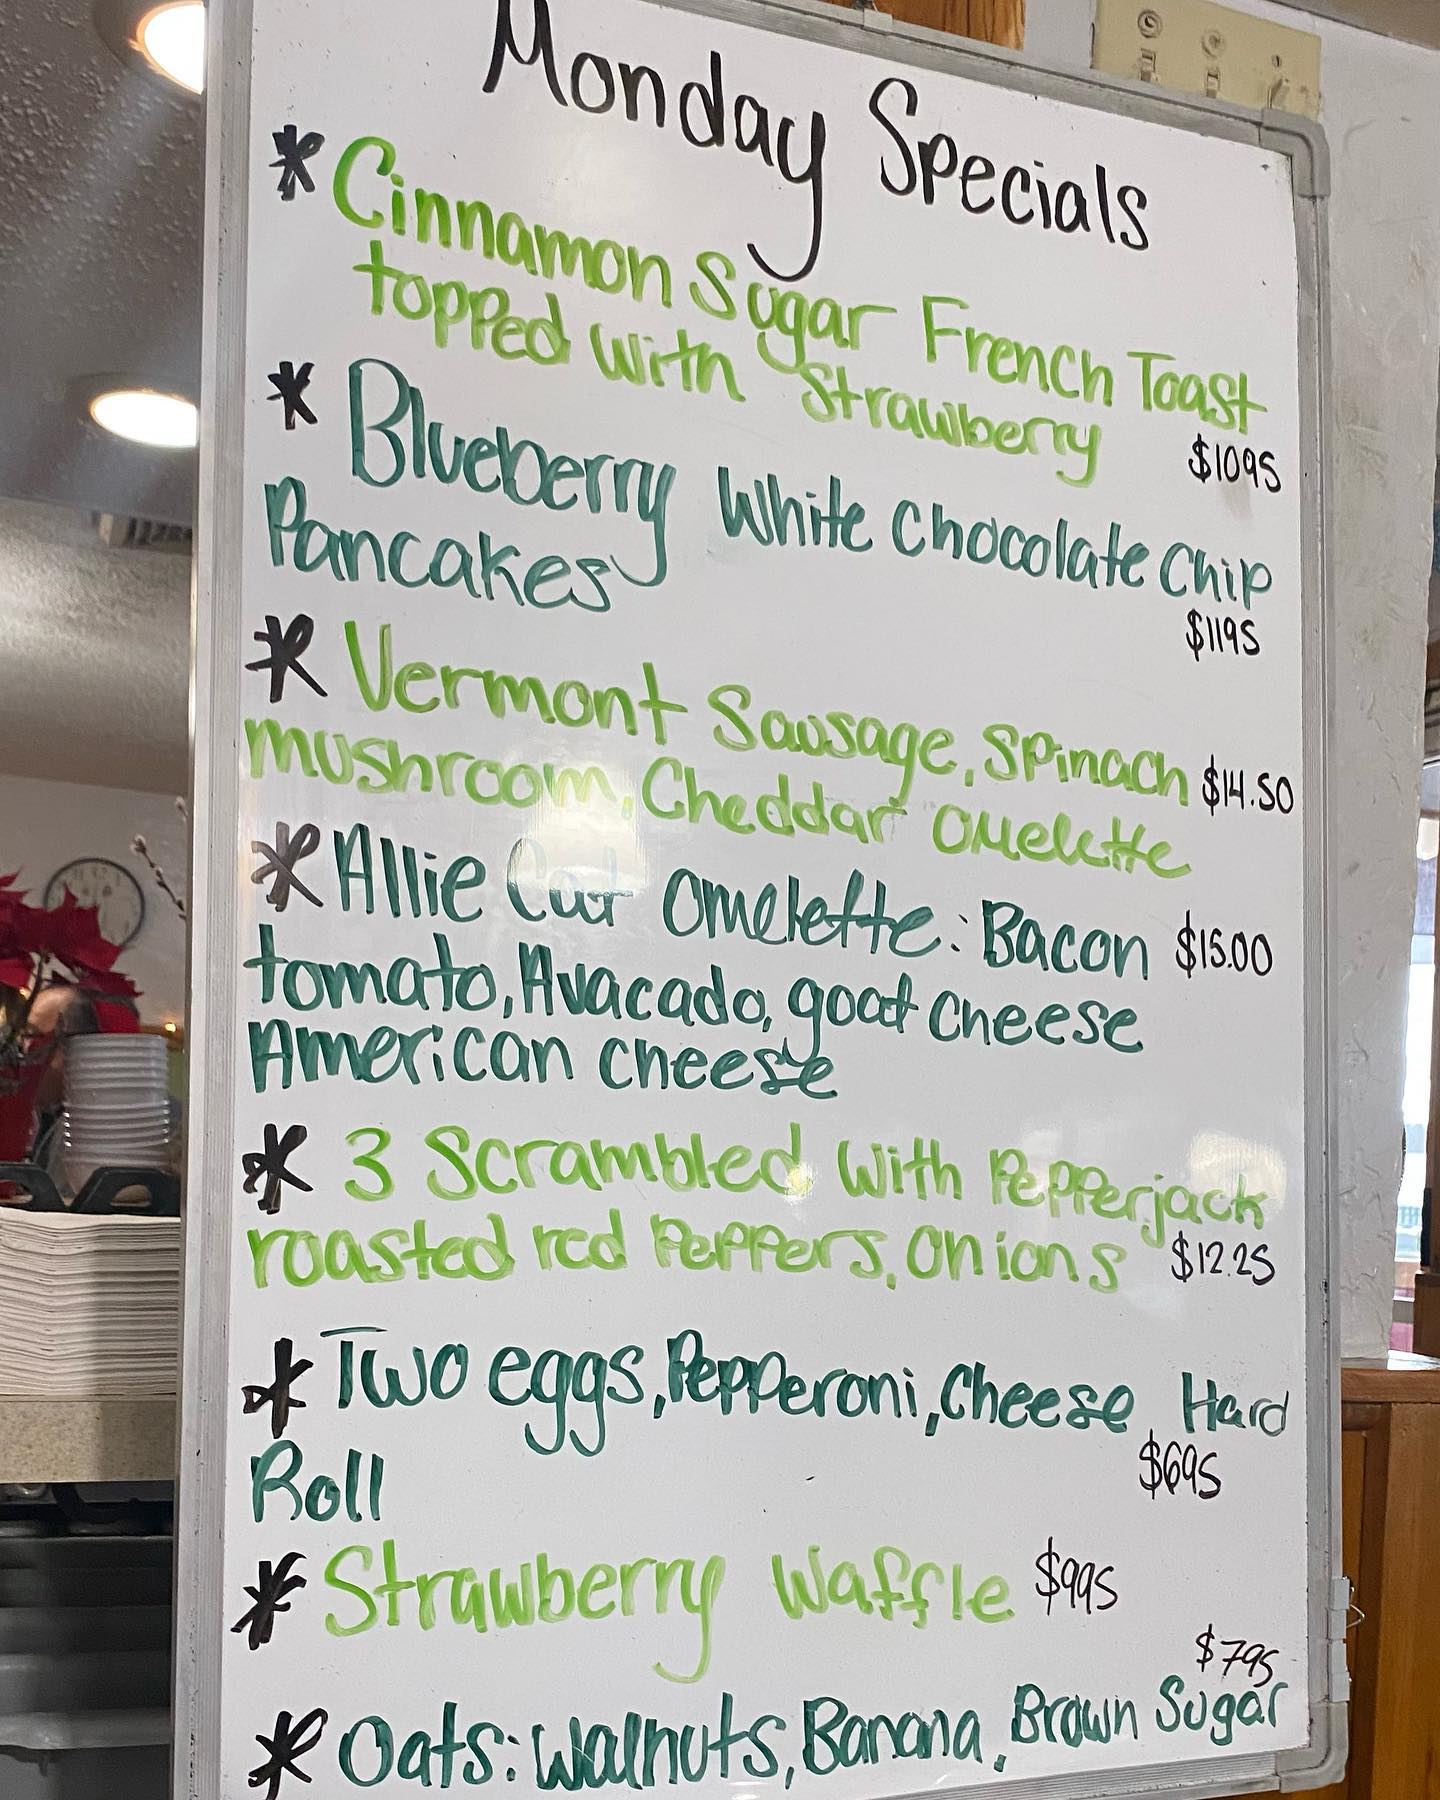 Monday Specials
* Cinnamon Sugar French Toast
topped with Strawberry $1095
* Blueberry White Chocolate Chip
Pancakes $1195
* Vermont Sausage, Spinach $14.50
mushroom, Cheddar omelette
* Allie Cat omelette: Bacon $15.00
tomato, Avacado, goat cheese
American cheese
* 3 Scrambled with Pepperjack
roasted red Peppers, onions $12.25
* Two eggs, Pepperoni, Cheese Hard
Roll $695
* Strawberry Waffle $995
$795
* Oats: Walnuts, Banana, Brown Sugar